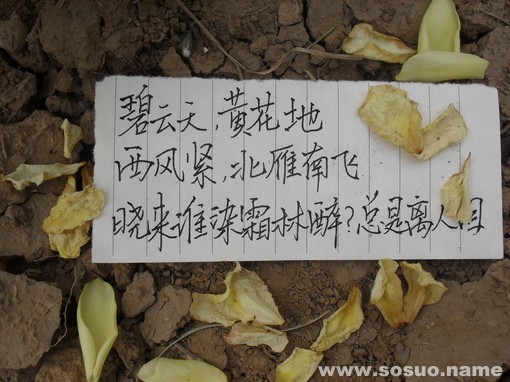 碧云天,黄花地
西风紧,北雁南飞
晓来谁染霜林醉?总是离人泪
www.sosuo.name